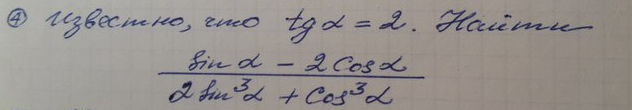 ④ Известно, что tg α = 2. Найти
sin α - 2 cos α
2 sin³ α + cos³ α